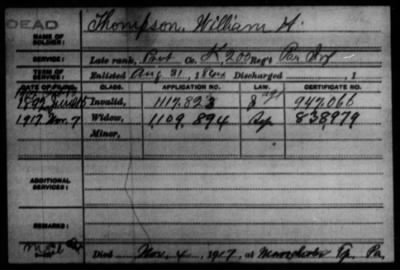 DEAD
Thompson, William H.
NAME OF SOLDIER:
SERVICE: Late rank, Pvt Co. K, 200 Reg't Pa Inf
TERM OF SERVICE: Enlisted Aug 31, 1864 Discharged , 1
DATE OF FILING. CLASS. APPLICATION NO. LAW. CERTIFICATE NO.
1892 Invalid, 1117.823 947.066
1917 Nov. 7 Widow, 1,109,894 838,979
Minor,
ADDITIONAL SERVICES:
REMARKS:
Died Nov. 4, 1917, at Manchester Tp. Pa.